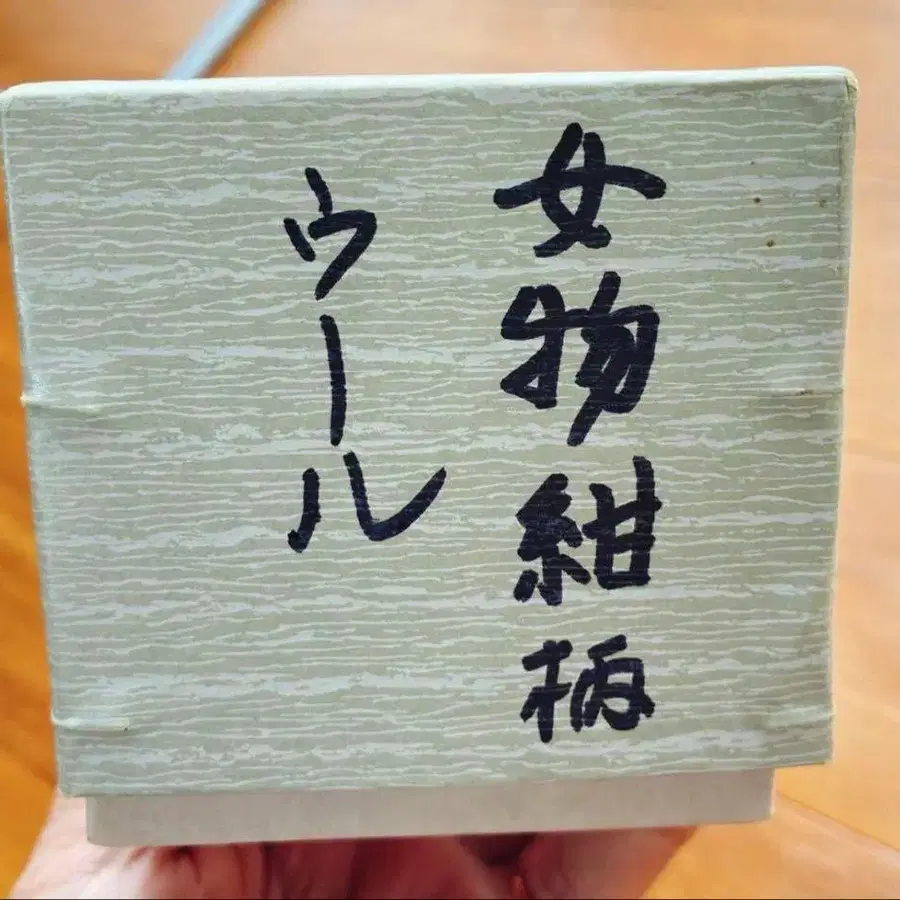 女物紺柄
ウール